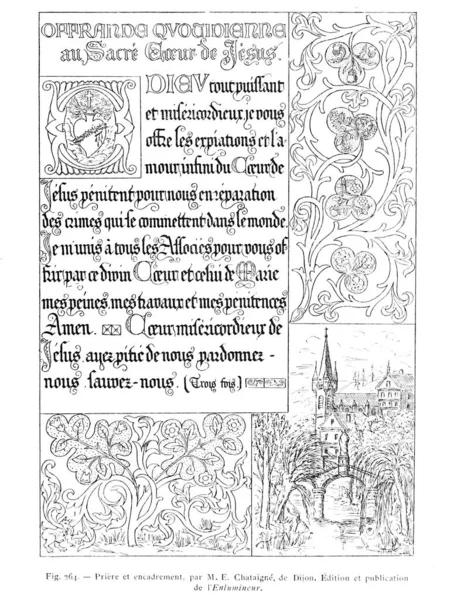 OFFRANDE QVOTIDIENNE
au Sacré Cœur de Jésus.
DIEV tout puissant
et miséricordieux, je vous
offre les expiations et l'a-
mour infini du Cœur de
Jésus pénitent pour nous en réparation
des crimes qui se commettent dans le monde.
Je m'unis à tous les Associés pour vous of
frir par ce divin Cœur et celui de Marie
mes peines, mes travaux et mes pénitences
Amen. Cœur miséricordieux de
Jésus, ayez pitié de nous, pardonnez-
nous, sauvez-nous. (Trois fois)
Fig. 264. — Prière et encadrement, par M. E. Chataigné, de Dijon. Édition et publication
de l'Enlumineur.